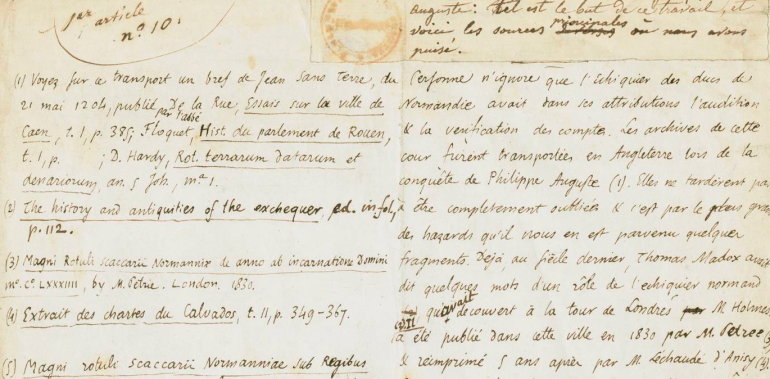 1er article
n.o 10.
Auguste: Tel est le but de ce travail, et
voici, les sources principales où nous avons
puisé.
(1) Voyez sur ce transport un bref de Jean Sans Terre, du
21 mai 1204, publié par l'abbé De la Rue, Essais sur la ville de
Caen, t. 1, p. 385; Floquet, Hist. du parlement de Rouen,
t. 1, p. ; D. Hardy, Rot. terrarum datarum et
denariorum, an. 5 Joh., m.a 1.
(2) The history and antiquities of the exchequer, ed. in fol,
p. 112.
(3) Magni Rotuli scaccarii Normanniæ de anno ab incarnatione Domini
mo. Co. LXXXIIII, by M. Pétrie. London. 1830.
(4) Extrait des chartes du Calvados, t. 11, p. 349-367.
(5) Magni rotuli scaccarii Normanniae sub Regibus
Personne n'ignore que l'Echiquier des ducs de
Normandie avait dans ses attributions l'audition
& la vérification des comptes. Les archives de cette
cour furent transportées en Angleterre lors de la
conquête de Philippe Auguste (1). Elles ne tardèrent pas
à être complètement oubliées & c'est par le plus grand
des hazards qu'il nous en est parvenu quelques
fragments. Déjà au siècle dernier, Thomas Madox avait
dit quelques mots d'un rôle de l'echiquier normand
qu'avait découvert à la tour de Londres M. Holmes
Il a été publié dans cette ville en 1830 par M. Petree (3)
& réimprimé 5 ans après par M. Léchaudé d'Anisy (4).